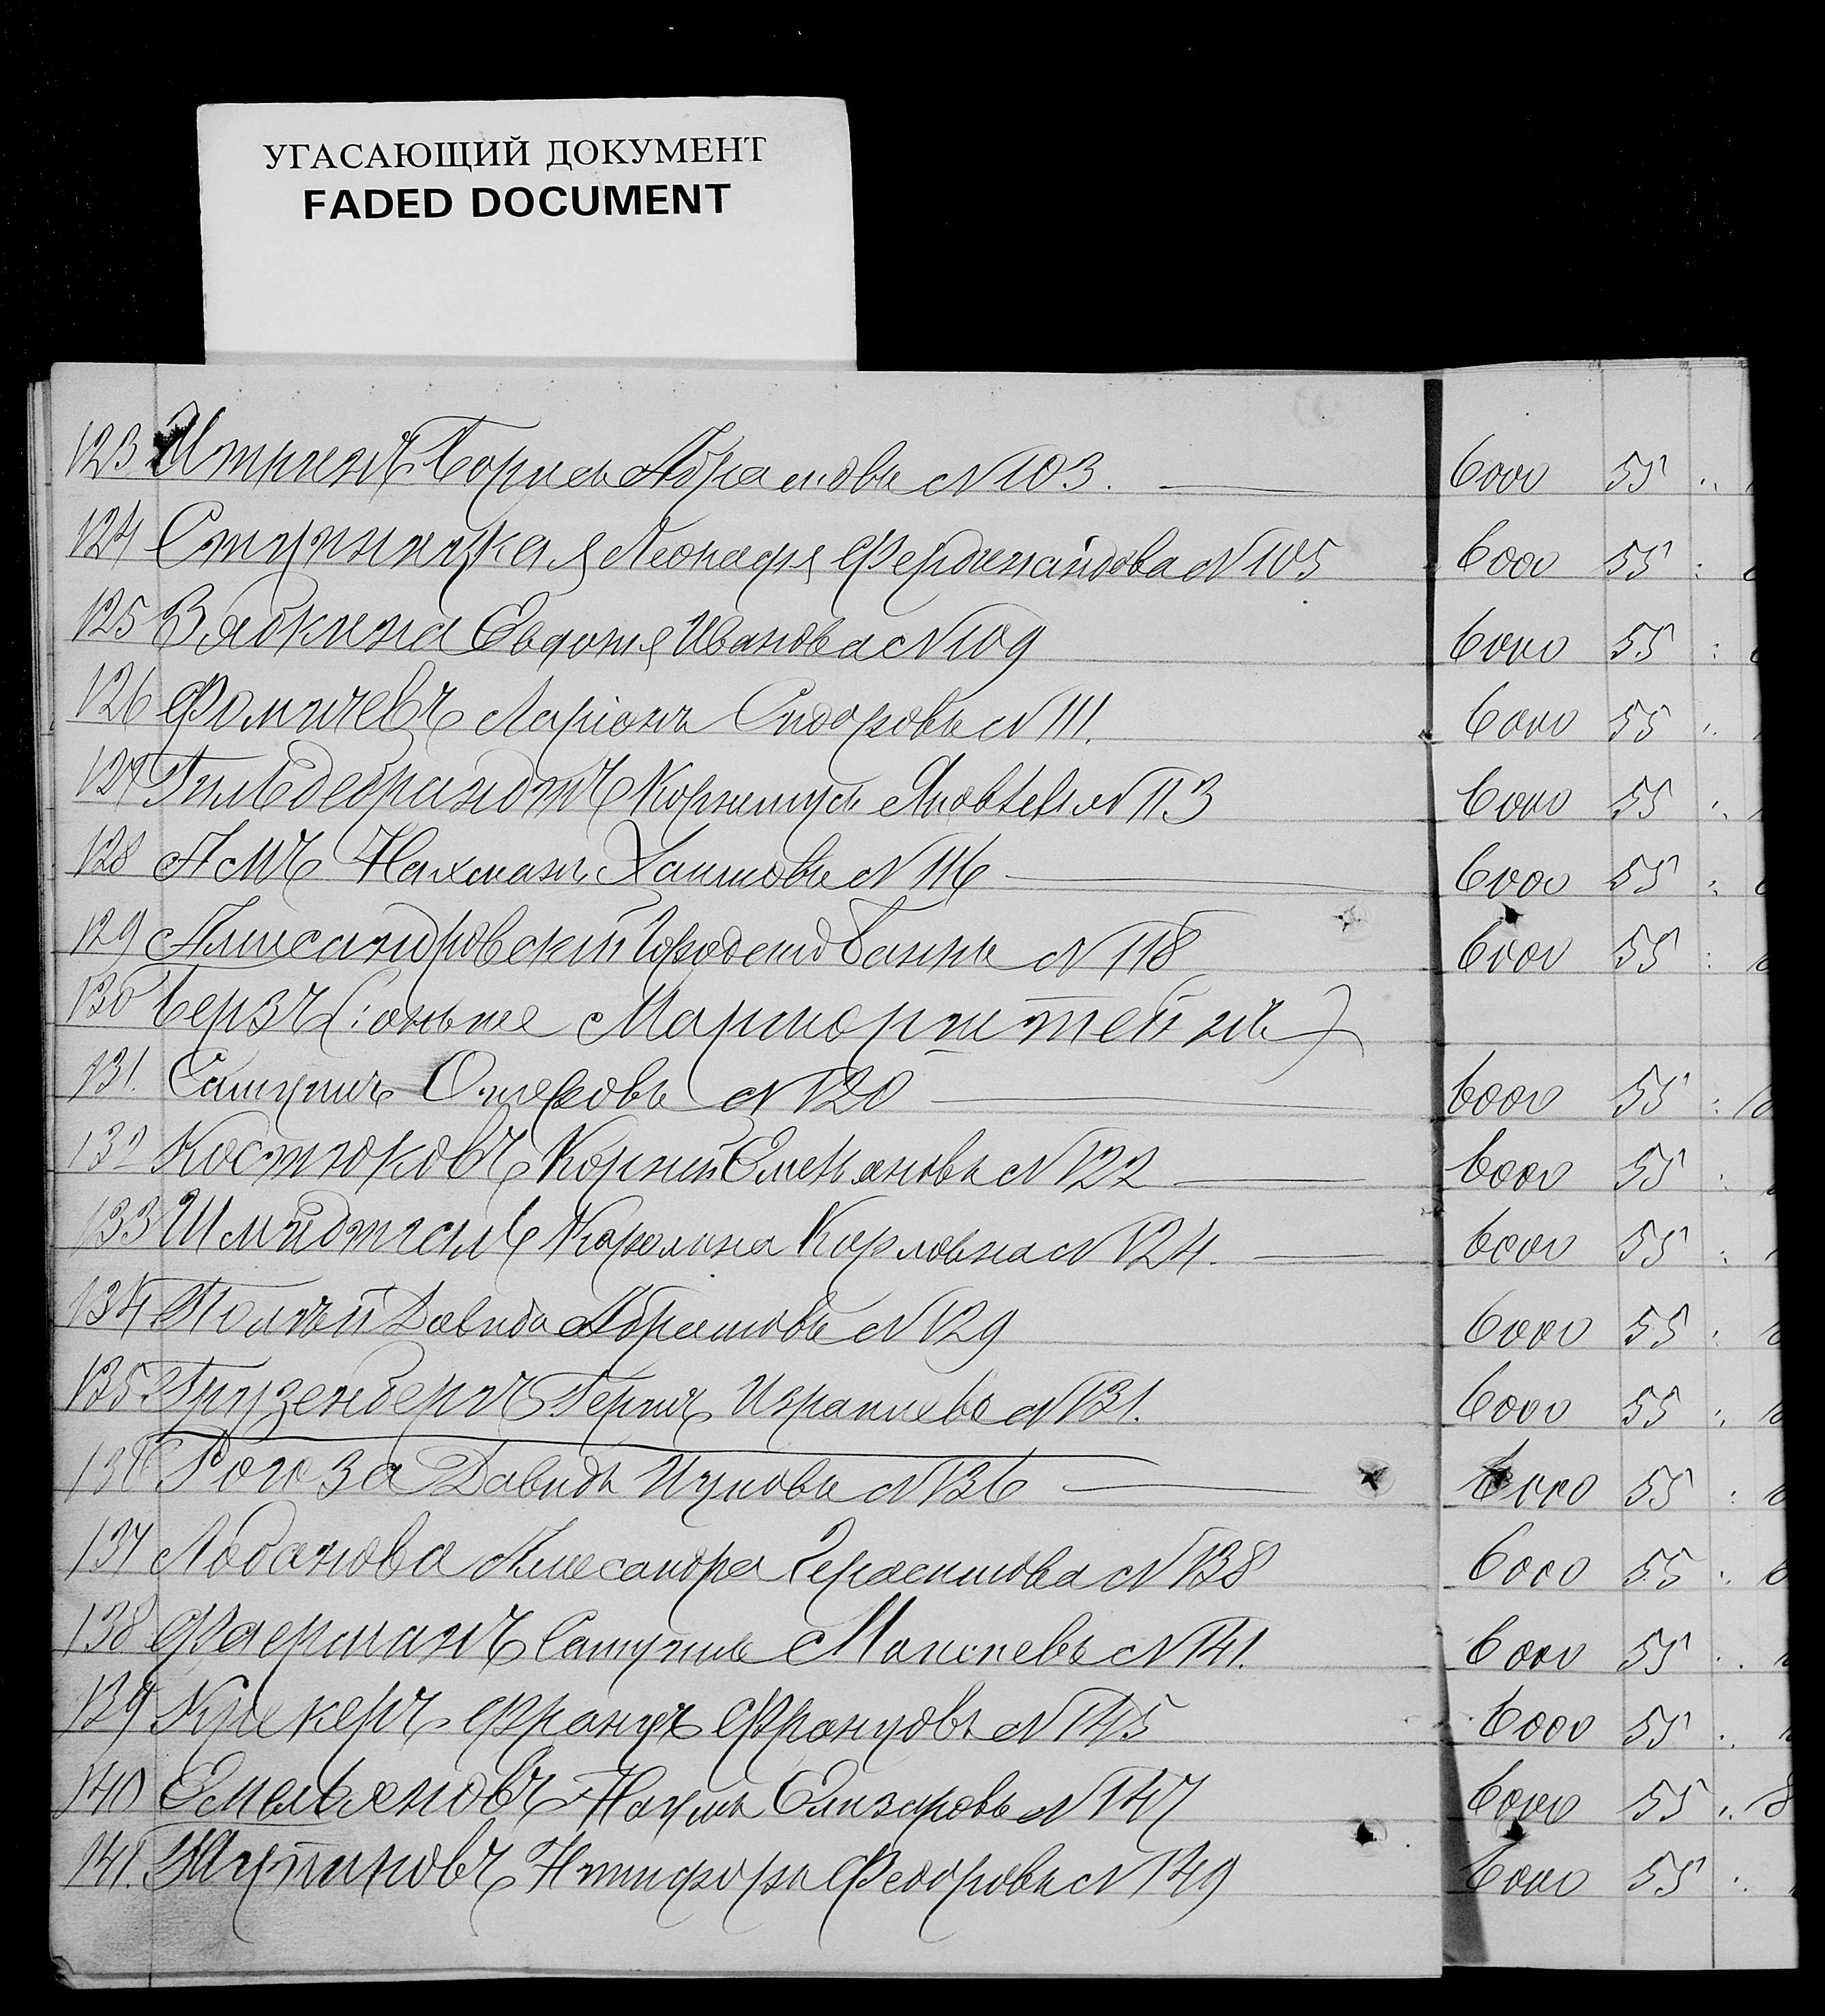 УГАСАЮЩИЙ ДОКУМЕНТ
FADED DOCUMENT
123 Борисъ Абрамовъ № 103. 6000 55
124 Ступницкая Леокадія Фердинандова № 105 6000 55
125 Вядкина Евдокія Иванова № 109 6000 55
126 Фомичевъ Ларіонъ Сидоровъ № 111. 6000 55
127 Гильдебрандтъ Корнилусъ Яковлевъ № 113 6000 55
128 Нахманъ Хаимовъ № 116 6000 55
129 Александровскій Городской Банкъ № 118 6000 55
130 Берзъ (:онъ же Марморштейнъ)
131. Самуилъ Ошеровъ № 120 6000 55
132 Костюковъ Корней Емельяновъ № 122 6000 55
133 Шмидтгаль Каролина Карловна № 124. 6000 55
134 Давидъ Абрамовъ № 129 6000 55
135. Грузенбергъ Герцъ Израилевъ № 131. 6000 55
136 Рогоза Давидъ Ицковъ № 136 6000 55
137 Лобанова Александра Герасимова № 138 6000 55
138 Фаерманъ Самуилъ Моисеевъ № 141. 6000 55
139 Францъ Францовъ № 145 6000 55
140 Емельяновъ Наумъ Елизаровъ № 147 6000 55
141. Никифоръ Федоровъ № 149 6000 55